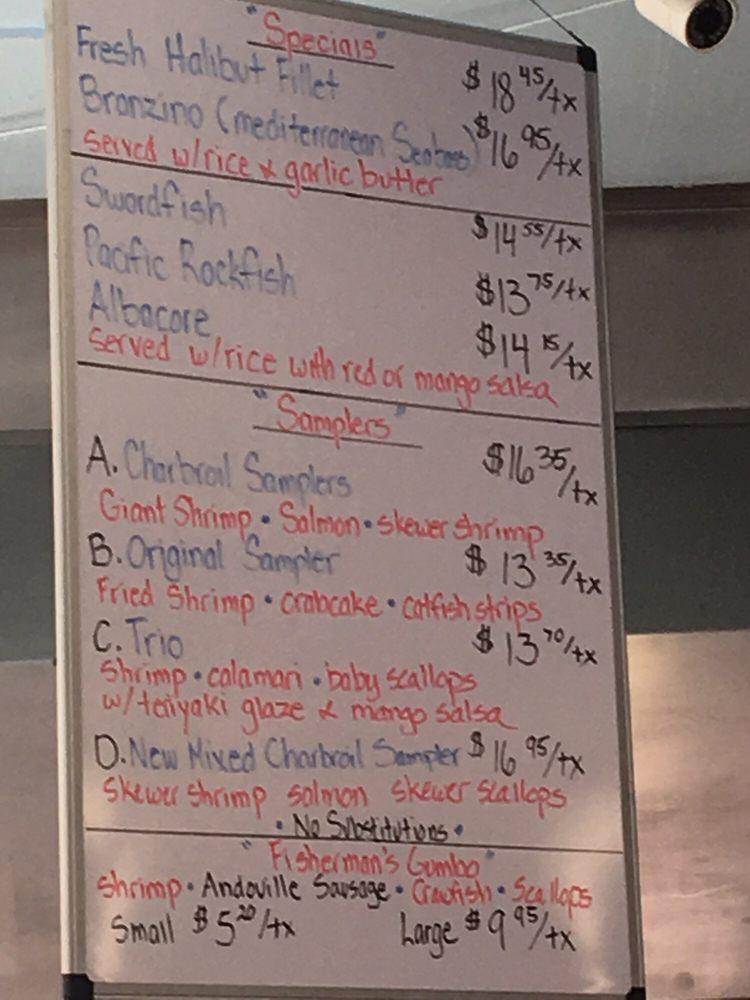 "Specials"
Fresh Halibut Fillet $18 45/tx
Bronzino (mediterranean Seabass) $16 95/tx
Served w/rice & garlic butter
Swordfish $14 55/tx
Pacific Rockfish $13 75/tx
Albacore $14 15/tx
Served w/rice with red or mango salsa
"Samplers"
A. Charbroil Samplers $16 35/tx
Giant Shrimp • Salmon • skewer shrimp
B. Original Sampler $13 35/tx
Fried Shrimp • crabcake • catfish strips
C. Trio $13 70/tx
Shrimp • calamari • baby scallops
w/teriyaki glaze & mango salsa
D. New Mixed Charbroil Sampler $16 95/tx
Skewer shrimp salmon skewer scallops
• No Substitutions •
"Fisherman's Gumbo"
Shrimp • Andoville Sausage • Crawfish • Scallops
Small $5 20/tx Large $9 95/tx